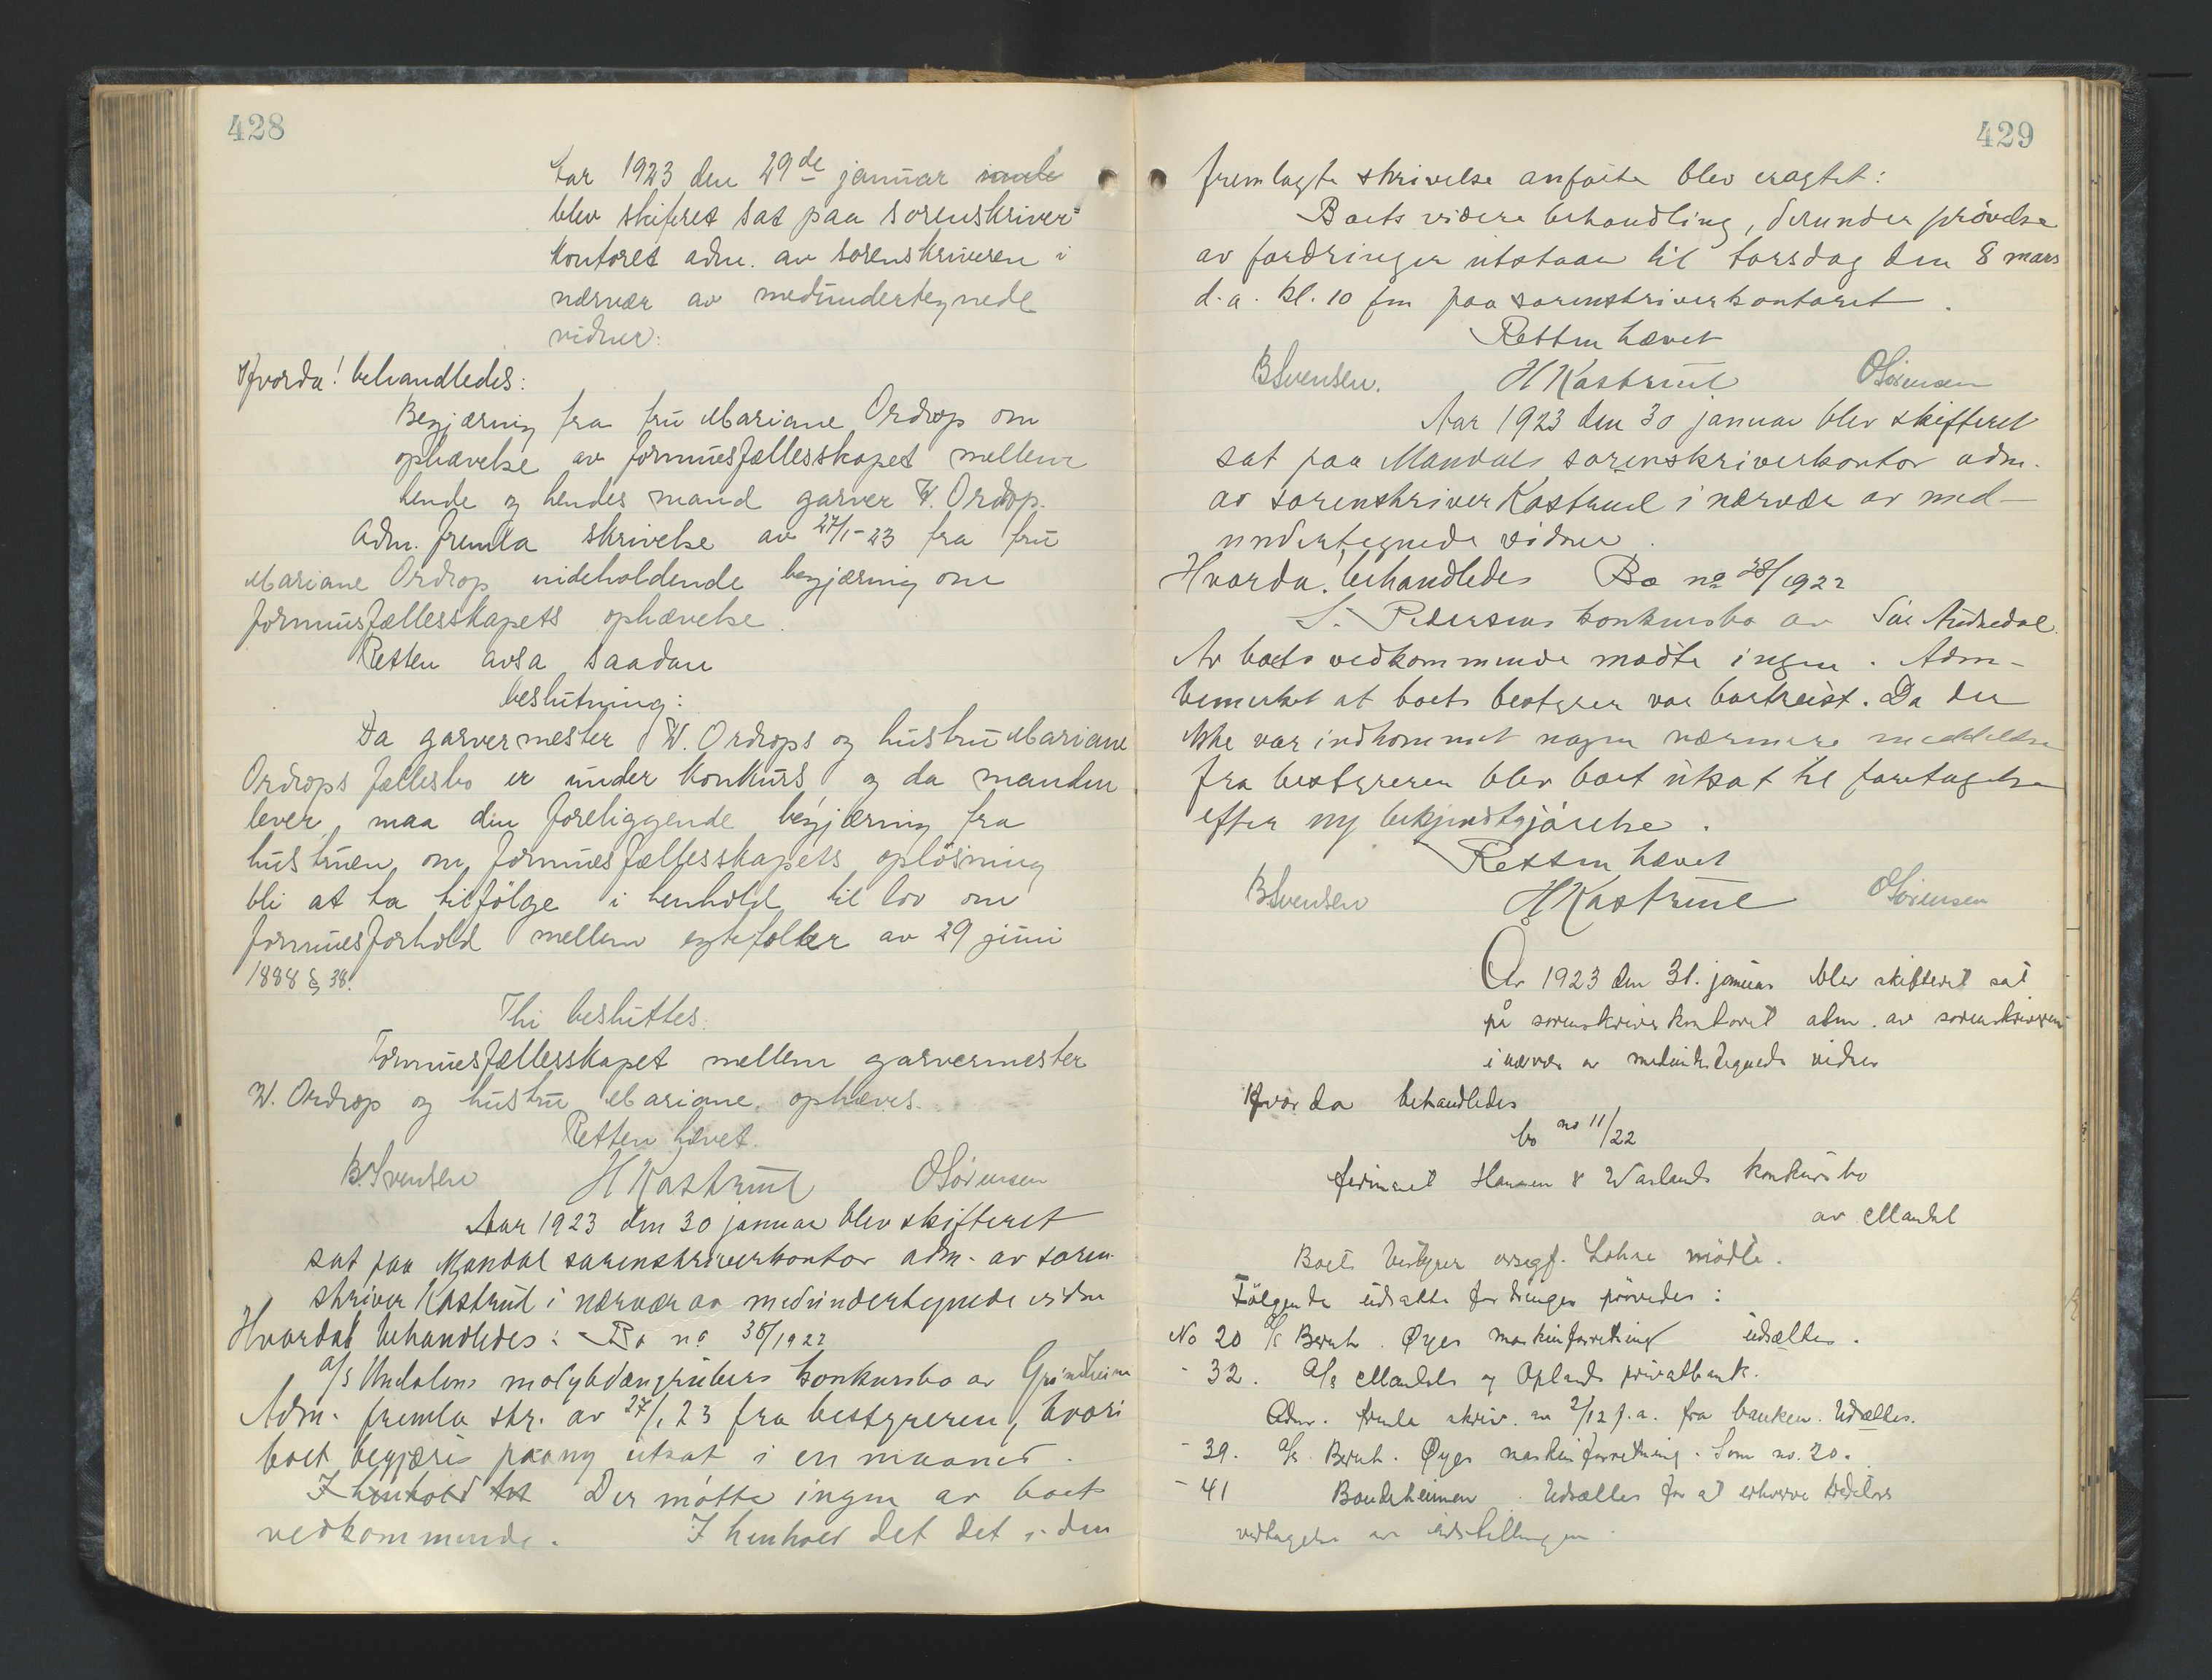 428
Aar 1923 den 29de januar
blev skifteret sat paa sorenskriver=
kontoret adm. av sorenskriveren i
nærvær av medundertegnede
vidner:
Hvorda! behandledes:
Begjæring fra fru Mariane Ordrop om
ophævelse av formuesfællesskapet mellem
hende og hendes mand garver W. Ordrop.
Adm. fremla skrivelse av 27/1-23 fra fru
Mariane Ordrop indeholdende begjæring om
formuesfællesskapets ophævelse.
Retten avsa saadan
beslutning:
Da garvermester W. Ordrops og hustru Mariane
Ordrops fællesbo er under konkurs og da manden
lever, maa den foreliggende begjæring fra
hustruen om formuesfællesskapets opløsning
bli at ta tilfølge i henhold til lov om
formuesforhold mellem egtefolker av 29 juni
1888 § 38.
Thi besluttes:
Formuesfællesskapet mellem garvermester
W. Ordrop og hustru Mariane, ophæves.
Retten hævet.
B. Svensen H Kastrud O Sörensen
Aar 1923 den 30 januar blev skifteret
sat paa Mandal sorenskriverkontor adm. av soren-
skriver Kastrud i nærvær av medundertegnede vidner
Hvorda! behandledes: Bo no 36/1922
a/s Undalens molybdængrubers konkursbo av Grindheim
Adm. fremla skr. av 27/1 23 fra bestyreren, hvori
boet begjæres paany utsat i en maaned.
I henhold tet Der møtte ingen av boets
vedkommende. I henhold det det i den
429
fremlagte skrivelse anførte blev eragtet:
Boets videre behandling, derunder prøvelse
av fordringer utstaar til torsdag den 8 mars
d.a. kl. 10 fm paa sorenskriverkontoret.
Retten hævet
B Svensen. H Kastrud O Sörensen
Aar 1923 den 30 januar blev skifteret
sat paa Mandals sorenskriverkontor adm.
av sorenskriver Kastrud i nærvær av med-
undertegnede vidner.
Hvorda! behandledes Bo no 28/1922
S. Pedersens konkursbo av Sør Audnedal.
Av boets vedkommende mødte ingen. Adm-
bemerket at boets bestyrer var bortreist. Da der
ikke var indkommet nogen nærmere meddelelse
fra bestyreren blev boet utsat til foretagelse
efter ny bekjendtgjørelse.
Retten hævet
B Svensen H Kastrud O Sörensen
År 1923 den 31. januar blev skifteret sat
på sorenskriverkontoret adm. av sorenskriveren
i nærvær av medundertegnede vidner
Hvorda behandledes
bo no 11/22
firmaet Hansen & Warlands konkursbo
av Mandal
Boets bestyrer ovsagf. Lohne mødte.
Følgende udsatte fordringer prøvedes:
No 20 A/S Bernh. Øyes maskinforretning udsættes.
- 32. A/S Mandals og Oplands privatbank.
Adm. fremla skriv. av 2/12 f.a. fra banken. Udsættes.
- 39. A/S. Bernh. Øyes maskinforretning. Som no. 20.
- 41 Bondeheimen. Udsættes for at erhverve kreditors
vedtagelse av indstillingen.